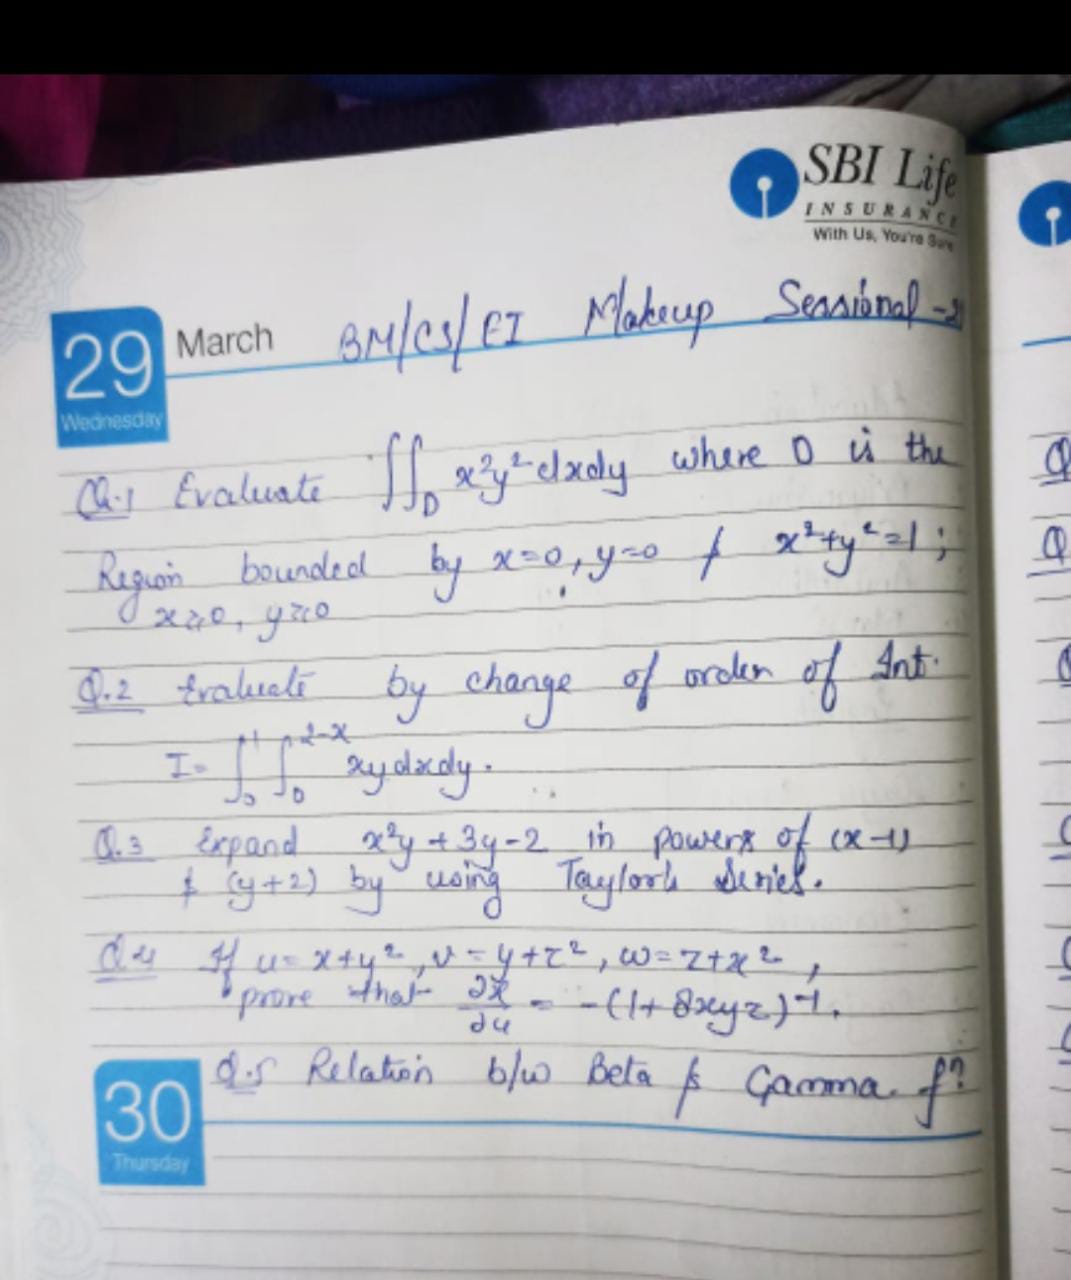 SBI Life
INSURANCE
With Us, You're Sure
29 March BM/CS/EI Makeup Sessional
Wednesday
Q.1 Evaluate ∬_D x²y² dxdy where D is the
Region bounded by x=0, y=0 & x²+y²=1;
x≥0, y≥0
Q.2 Evaluate by change of order of Int.
I = ∫₀¹ ∫₀^{2-x} xy dxdy.
Q.3 Expand x²y + 3y - 2 in powers of (x-1)
& (y+2) by using Taylor's Series.
Q.4 If u = x+y², v = y+z², w = z+x²,
prove that ∂x/∂u = -(1+8xyz)⁻¹.
Q.5 Relation b/w Beta & Gamma fⁿ
30
Thursday